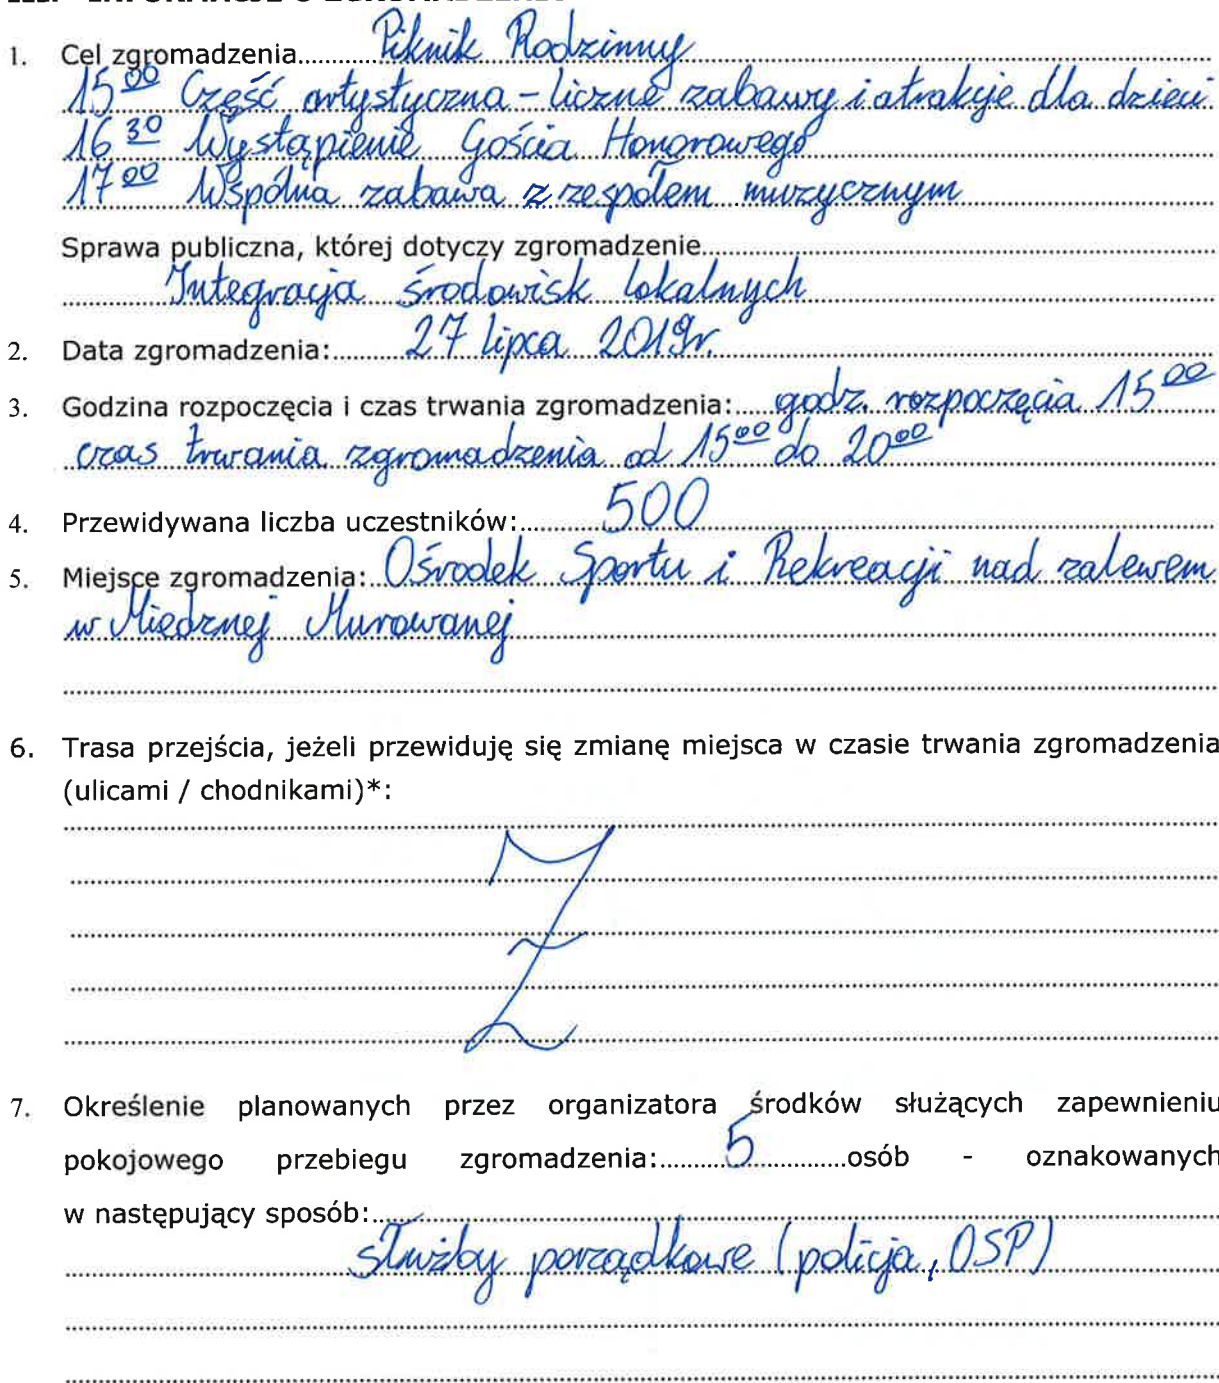 1. Cel zgromadzenia Piknik Rodzinny
15 00 Część artystyczna - liczne zabawy i atrakcje dla dzieci
16 30 Wystąpienie Gościa Honorowego
17 00 Wspólna zabawa z zespołem muzycznym
Sprawa publiczna, której dotyczy zgromadzenie
Integracja środowisk lokalnych
2. Data zgromadzenia: 27 lipca 2019r.
3. Godzina rozpoczęcia i czas trwania zgromadzenia: godz. rozpoczęcia 15 00
czas trwania zgromadzenia od 15 00 do 20 00
4. Przewidywana liczba uczestników: 500
5. Miejsce zgromadzenia: Ośrodek Sportu i Rekreacji nad zalewem
w Miedznej Murowanej
6. Trasa przejścia, jeżeli przewiduję się zmianę miejsca w czasie trwania zgromadzenia
(ulicami / chodnikami)*:
7. Określenie planowanych przez organizatora środków służących zapewnieniu
pokojowego przebiegu zgromadzenia: 5 osób - oznakowanych
w następujący sposób:
służby porządkowe (policja, OSP)